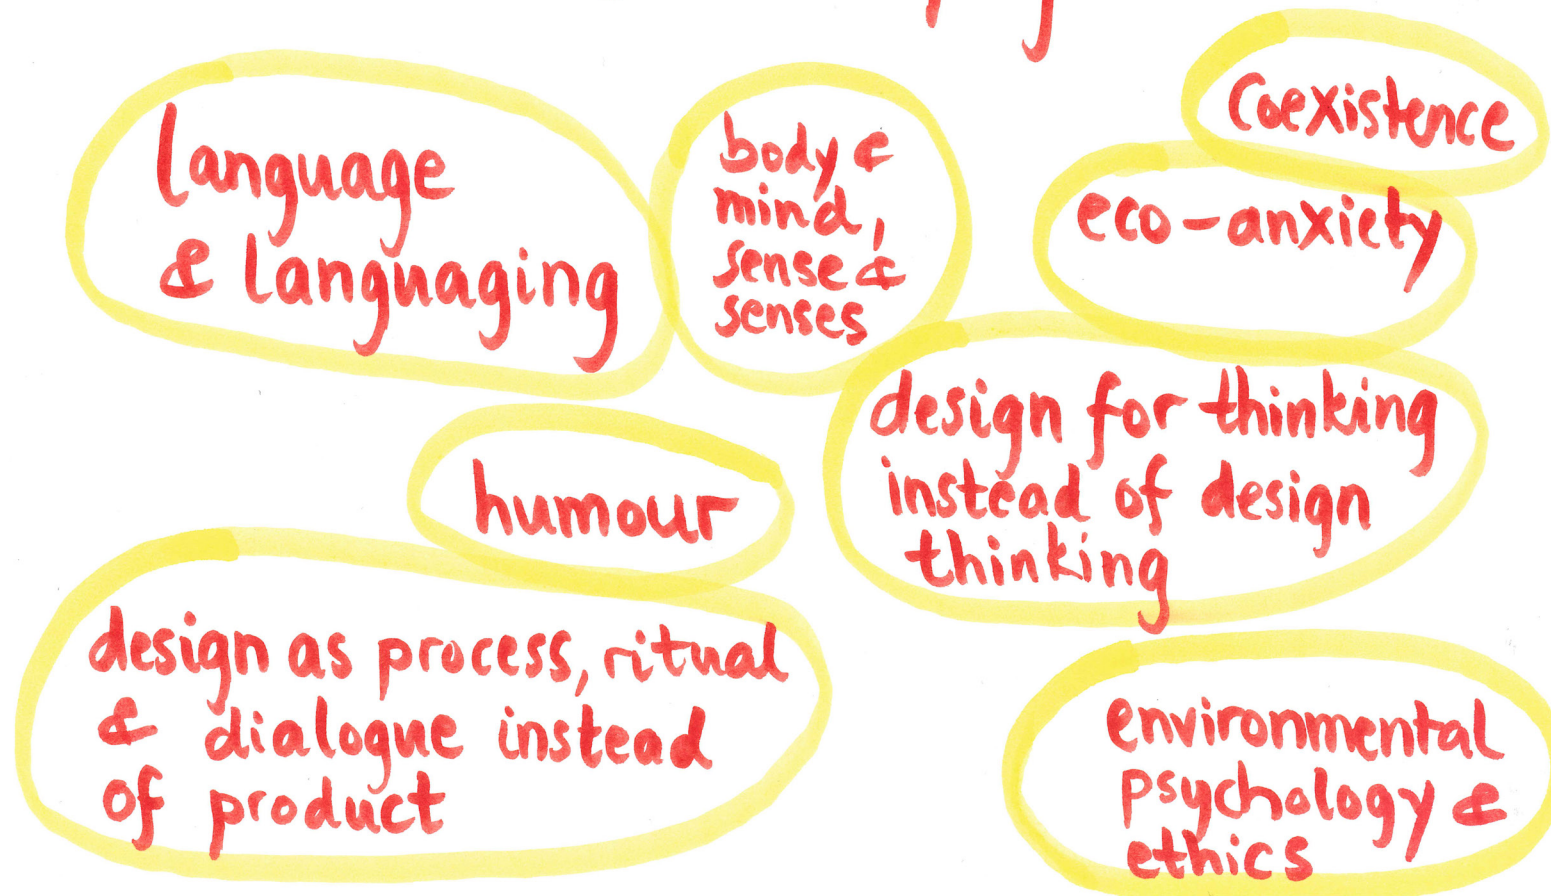 language
& languaging
body &
mind,
sense &
senses
Coexistence
eco-anxiety
design for thinking
instead of design
thinking
humour
design as process, ritual
& dialogue instead
of product
environmental
psychology &
ethics